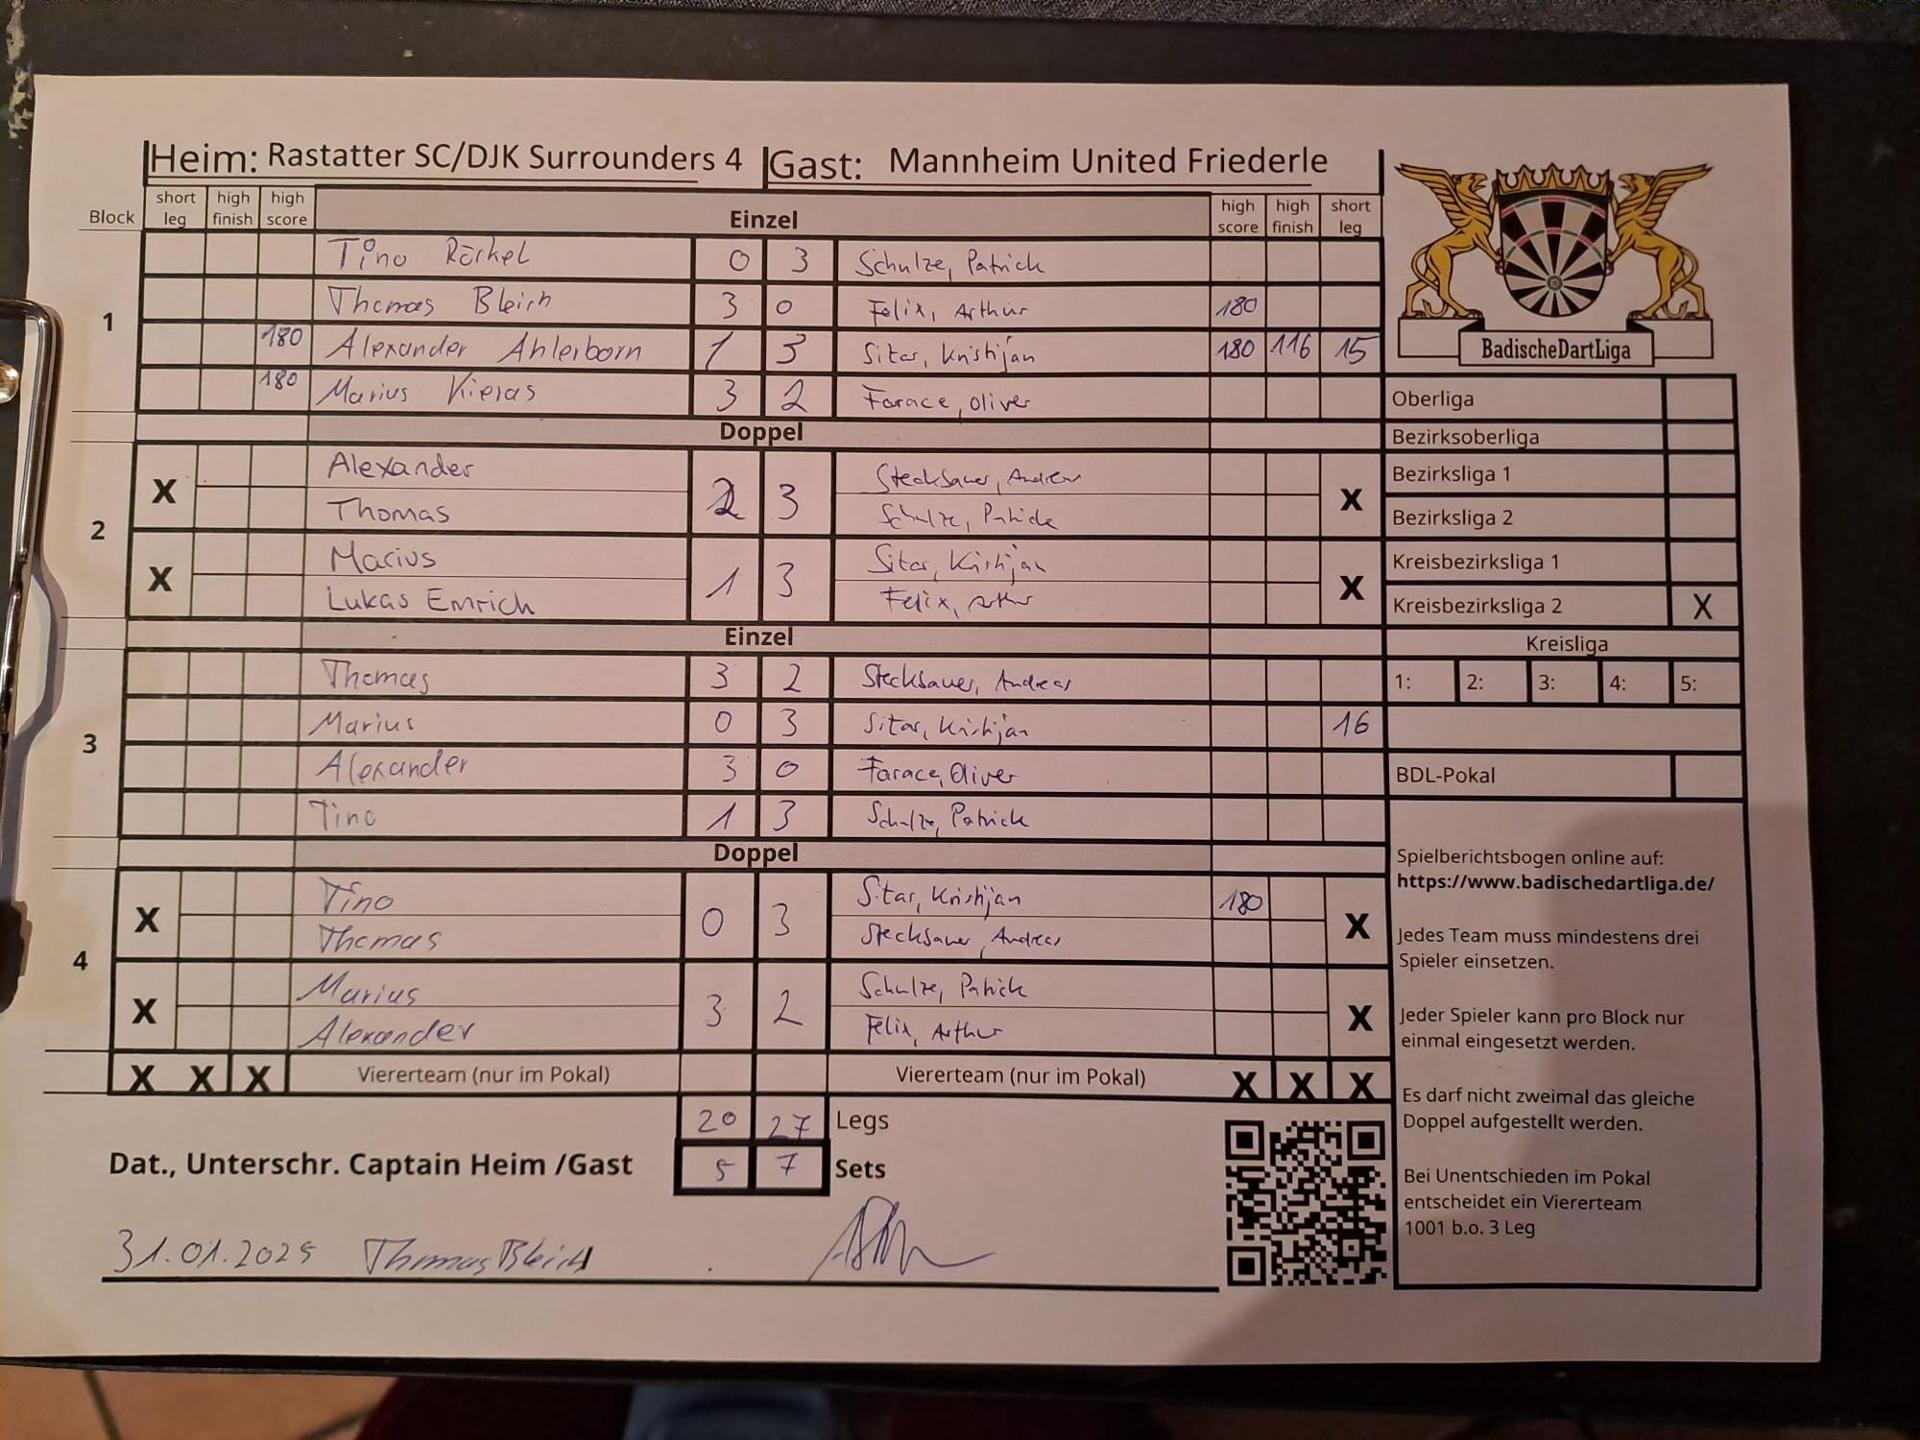 Heim: Rastatter SC/DJK Surrounders 4 Gast: Mannheim United Friederle
Block short leg high finish high score Einzel high score high finish short leg
Tino Röckel 0 3 Schulze, Patrick
1 Thomas Bleich 3 0 Felix, Arthur 180
180 Alexander Ahlerborn 1 3 Sitar, Kristijan 180 116 15
180 Marius Kieras 3 2 Farace, Oliver
Doppel
X Alexander 2 3 Stecksauer, Andreas X
Thomas Schulze, Patrick
2
X Marius 1 3 Sitar, Kristijan X
Lukas Emrich Felix, Arthur
Einzel
Thomas 3 2 Stecksauer, Andreas
3 Marius 0 3 Sitar, Kristijan 16
Alexander 3 0 Farace, Oliver
Tino 1 3 Schulze, Patrick
Doppel
X Tino 0 3 Sitar, Kristijan 180 X
Thomas Stecksauer, Andreas
4
X Marius 3 2 Schulze, Patrick X
Alexander Felix, Arthur
X X X Viererteam (nur im Pokal) Viererteam (nur im Pokal) X X X
20 27 Legs
Dat., Unterschr. Captain Heim /Gast 5 7 Sets
31.01.2025 Thomas Bleich
BadischeDartLiga
Oberliga
Bezirksoberliga
Bezirksliga 1
Bezirksliga 2
Kreisbezirksliga 1
Kreisbezirksliga 2 X
Kreisliga
1: 2: 3: 4: 5:
BDL-Pokal
Spielberichtsbogen online auf:
https://www.badischedartliga.de/
Jedes Team muss mindestens drei
Spieler einsetzen.
Jeder Spieler kann pro Block nur
einmal eingesetzt werden.
Es darf nicht zweimal das gleiche
Doppel aufgestellt werden.
Bei Unentschieden im Pokal
entscheidet ein Viererteam
1001 b.o. 3 Leg